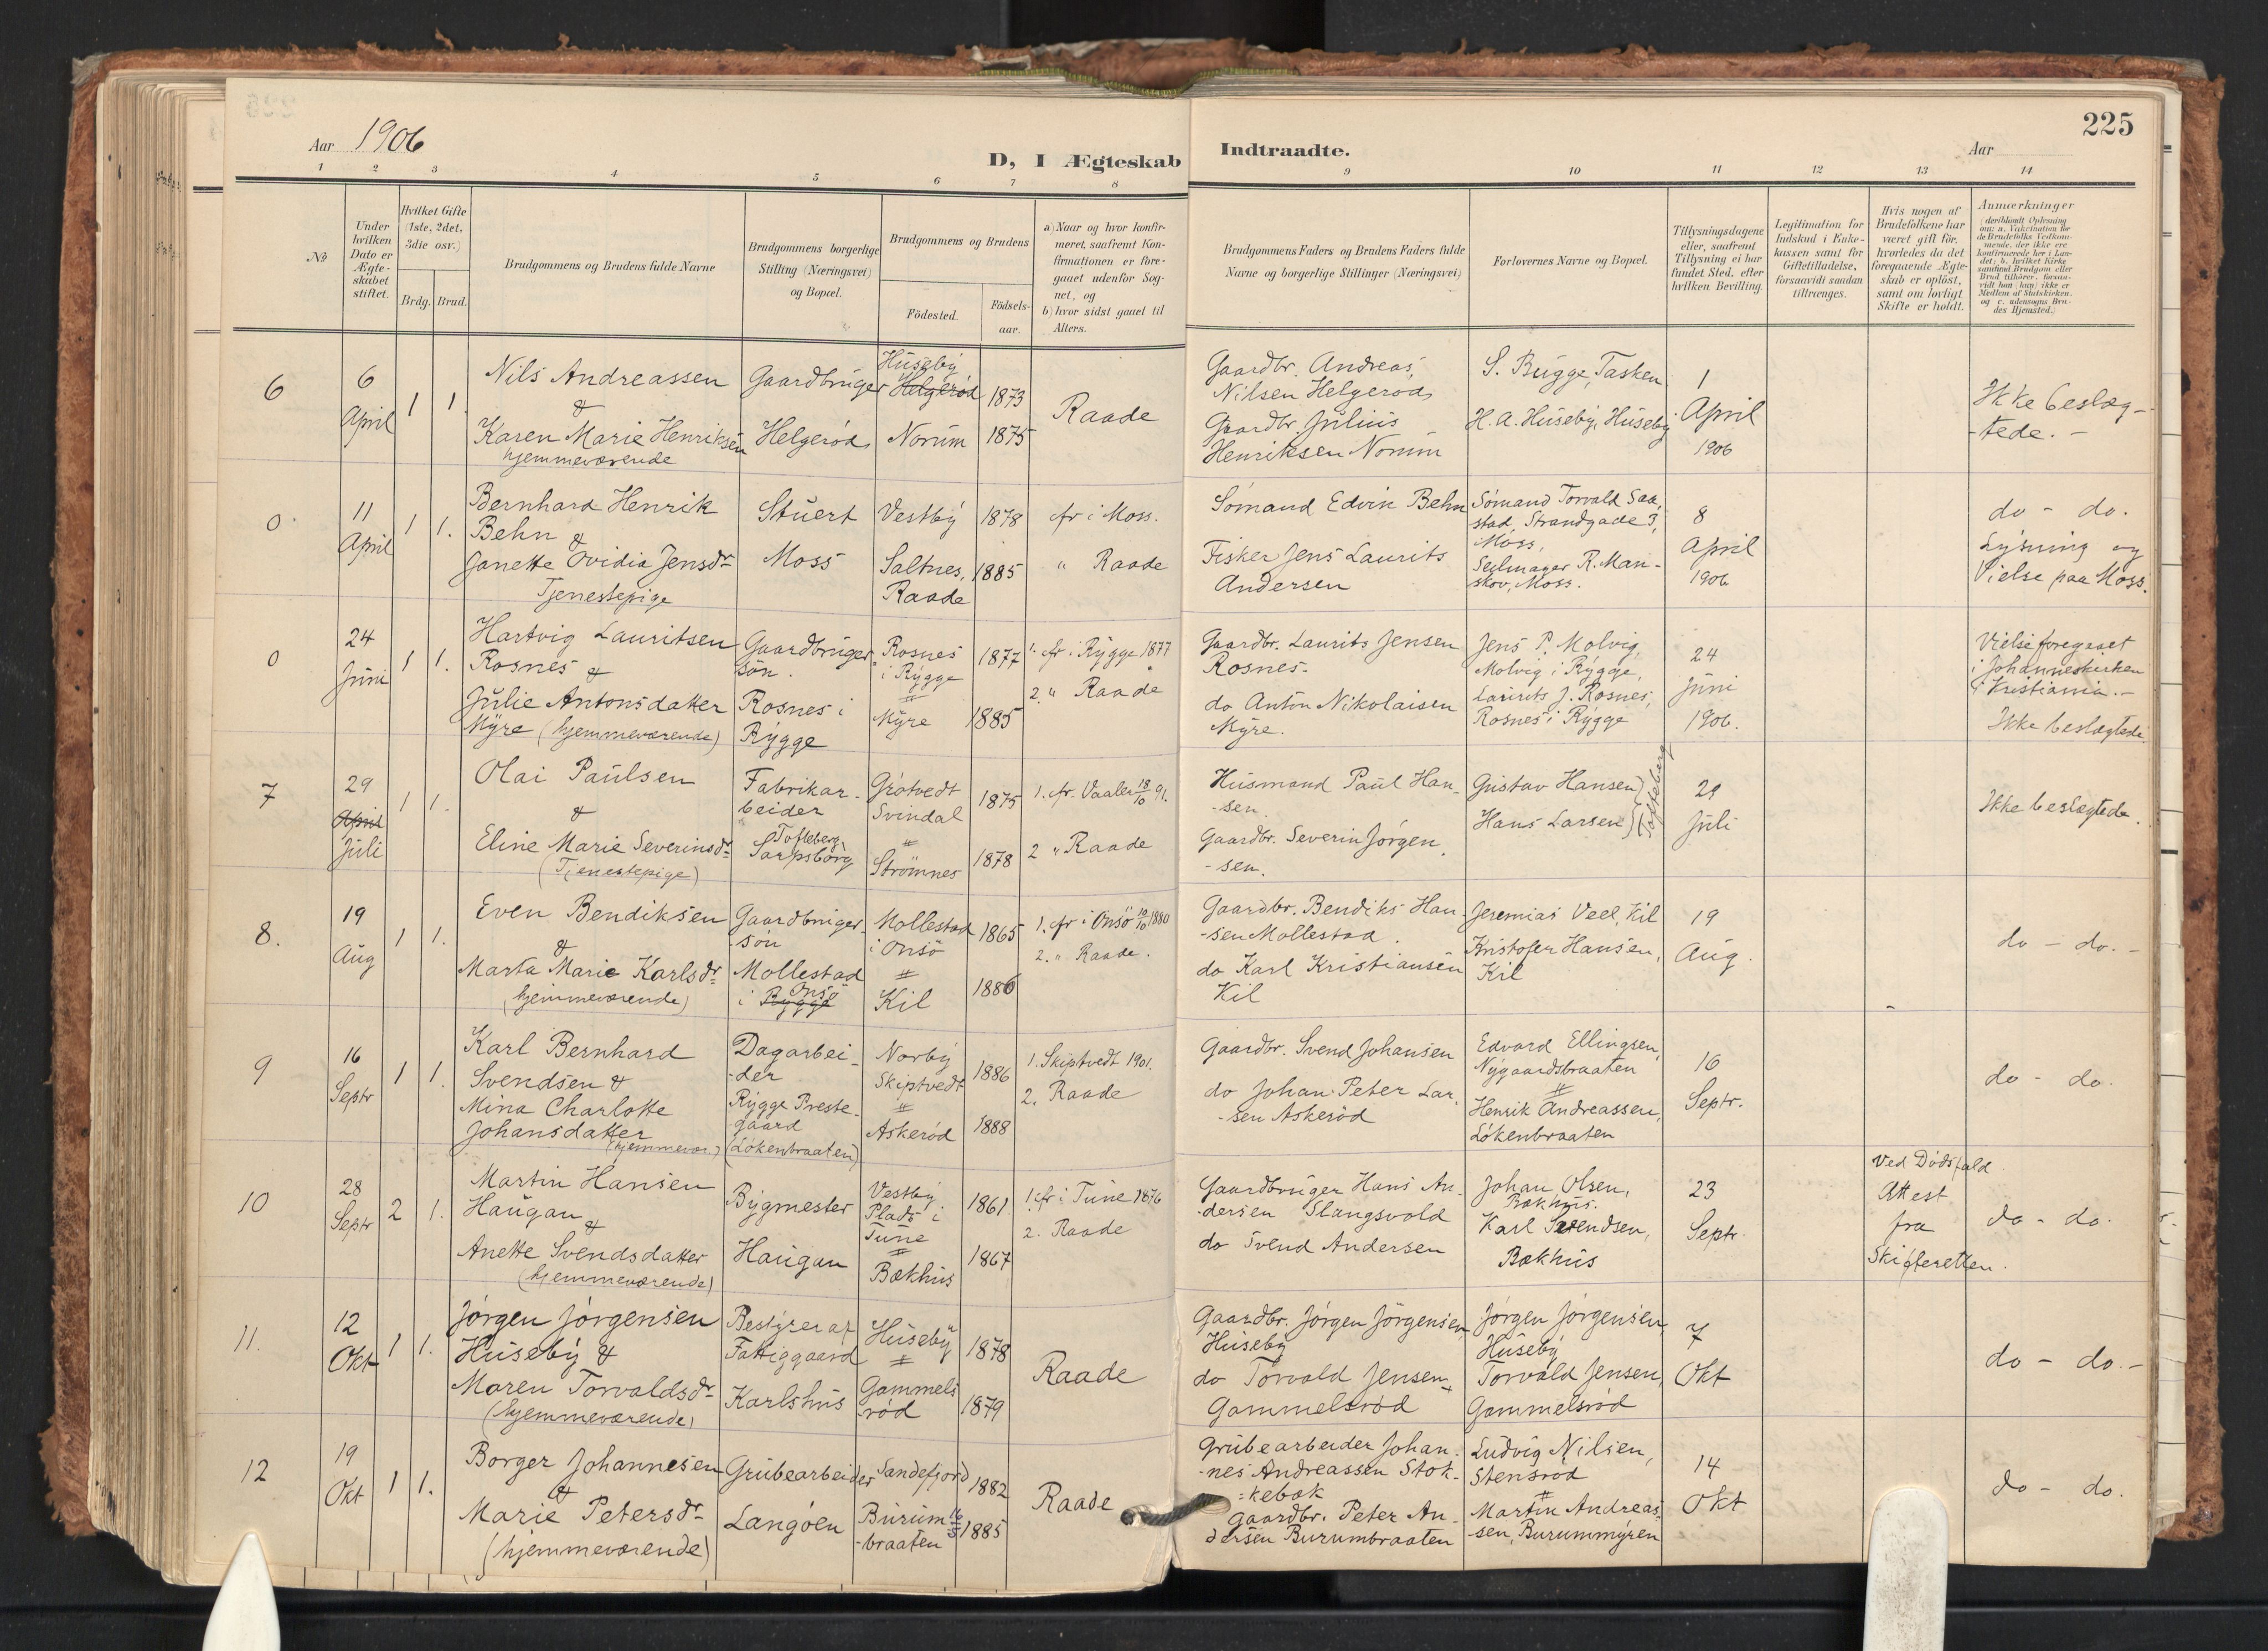 225
Aar 1906
D, I Ægteskab Indtraadte.
Aar
1 2 3 4 5 6 7 8 9 10 11 12 13 14
No
Under hvilken Dato er Ægteskabet stiftet.
Hvilket Gifte (1ste, 2det, 3die osv.)
Brdg. Brud.
Brudgommens og Brudens fulde Navne
Brudgommens borgerlige Stilling (Næringsvei) og Bopæl.
Brudgommens og Brudens
Födested.
Födselsaar.
a) Naar og hvor konfirmeret, saafremt Konfirmationen er foregaaet udenfor Sognet, og
b) hvor sidst gaaet til Alters.
Brudgommens Faders og Brudens Faders fulde Navne og borgerlige Stillinger (Næringsvei)
Forlovernes Navne og Bopæl.
Tillysningsdagene eller, saafremt Tillysning ei har fundet Sted, efter hvilken Bevilling.
Legitimation for Indskud i Enkekassen samt for Giftetilladelse, forsaavidt saadan tiltrænges.
Hvis nogen af Brudefolkene har været gift för, hvorledes da det foregaaende Ægteskab er oplöst, samt om lovligt Skifte er holdt.
Anmærkninger
(deriblandt Oplysning om: a. Vakcination for de Brudefolks Vedkommende, der ikke ere konfirmerede her i Landet; b. hvilket Kirkesamfund Brudgom eller Brud tilhører, forsaavidt han (hun) ikke er Medlem af Statskirken, og c. udensogns Brudes Hjemsted.)
6
6 April
1 1
Nils Andreassen
&
Karen Marie Henriksen
hjemmeværende
Gaardbruger
Helgerød
Huseby
Helgerød
Norum
1873
1875
Raade
Gaardbr. Andreas
Nilsen Helgerød
Gaardbr. Julius
Henriksen Norum
S. Bugge, Tasken
H. A. Huseby, Huseby
1
April
1906
Ikke beslæg-
-tede. -
0
11 April
1 1.
Bernhard Henrik
Behn &
Janette Ovidia Jensdr
Tjenestepige
Stuert
Moss
Vestby
Saltnes,
Raade
1878
1885
cfr i Moss.
" Raade
Sömand Edvin Behn
Fisker Jens Laurits
Andersen
Sömand Torvald Saa-
stad, Strandgade 3,
Moss,
Seilmager R. Man-
skov, Moss.
8
April
1906
do - do.
Lysning og
Vielse paa Moss.
0
24 Juni
1 1.
Hartvig Lauritsen
Rosnes &
Julie Antonsdatter
Myre (hjemmeværende)
Gaardbruger-
sön.
Rosnes i
Rygge
Rosnes
i Rygge
Myre
1877
1885
1. cfr i Rygge 1877
2. " Raade
Gaardbr. Laurits Jensen
Rosnes.
do Anton Nikolaisen
Myre.
Jens P. Molvig,
Molvig i Rygge,
Laurits J. Rosnes,
Rosnes i Rygge
24
Juni
1906.
Vielse foregaaet
i Johanneskirken
i Kristiania. -
Ikke beslægtede
7
29
April
Juli
1 1.
Olai Paulsen
&
Eline Marie Severinsdr
(Tjenestepige)
Fabrikar-
beider
Tofteberg
Sarpsborg
Grötvedt
Svindal
Strömnes
1875
1878
1. cfr. Vaaler 18/10 91.
2 " Raade
Husmand Paul Han-
-sen
Gaardbr. Severin Jörgen
-sen.
Gustav Hansen
Hans Larsen
Tofteberg
29
Juli
Ikke beslægtede.
8.
19
Aug
1 1.
Even Bendiksen
&
Marta Marie Karlsdr
(hjemmeværende)
Gaardbruger-
sön
Mollestad
i Rygge
Onsö
Mollestad
i Onsö
Kil
1865
1886
1. cfr i Onsö 10/10 1880
2. " Raade.
Gaardbr. Bendiks Han-
-sen Mollestad.
do Karl Kristiansen
Kil
Jeremias Veel, Kil
Kristofer Hansen,
Kil
19
Aug.
do - do. -
9
16
Septr
1 1.
Karl Bernhard
Svendsen &
Mina Charlotte
Johansdatter
(hjemmevær.)
Dagarbei-
-der
Rygge Preste-
gaard
(Lökenbraaten)
Norby
Skiptvedt
Askeröd
1886
1888
1. Skiptvedt 1901.
2. Raade
Gaardbr. Svend Johansen
do Johan Peter Lar-
-sen Askeröd
Edvard Ellingsen,
Nygaardsbraaten
Henrik Andreassen,
Lökenbraaten
16
Septr.
do - do.
10
28
Septr
2 1.
Martin Hansen
Haugan
&
Anette Svendsdatter
(hjemmeværende)
Bygmester
Haugan
Vestby
Plads i
Tune
Bækhus
1861
1867
1. cfr i Tune 1876
2. Raade
Gaardbruger Hans An-
-dersen Slangsvold
do Svend Andersen
Johan Olsen,
Bækhus.
Karl Svendsen,
Bækhus
23
Septr.
Ved Dödsfald
Attest
fra
Skifteretten.
do - do.
11.
12
Okt
1 1.
Jörgen Jörgensen
Huseby &
Maren Torvaldsdr
(hjemmeværende)
Bestyrer af
Fattiggaard
Karlshus
Huseby
Gammels
-röd
1878
1879
Raade
Gaardbr. Jörgen Jörgensen,
Huseby
do Torvald Jensen,
Gammelsröd
Jörgen Jörgensen,
Huseby
Torvald Jensen,
Gammelsröd
7
Okt
do - do. -
12
19
Okt
1 1.
Borger Johannesen
&
Marie Petersdr
(hjemmeværende)
Grubearbeider
Langöen
Sandefjord
Burum
-braaten
1882
1885
Raade
Grubearbeider Johan-
-nes Andreassen Stok-
-kebæk
Gaardbr. Peter An-
dersen Burumbraaten
Ludvig Nilsen,
Stensrod
Martin Andreas-
-sen, Burummyren
14
Okt
do - do.